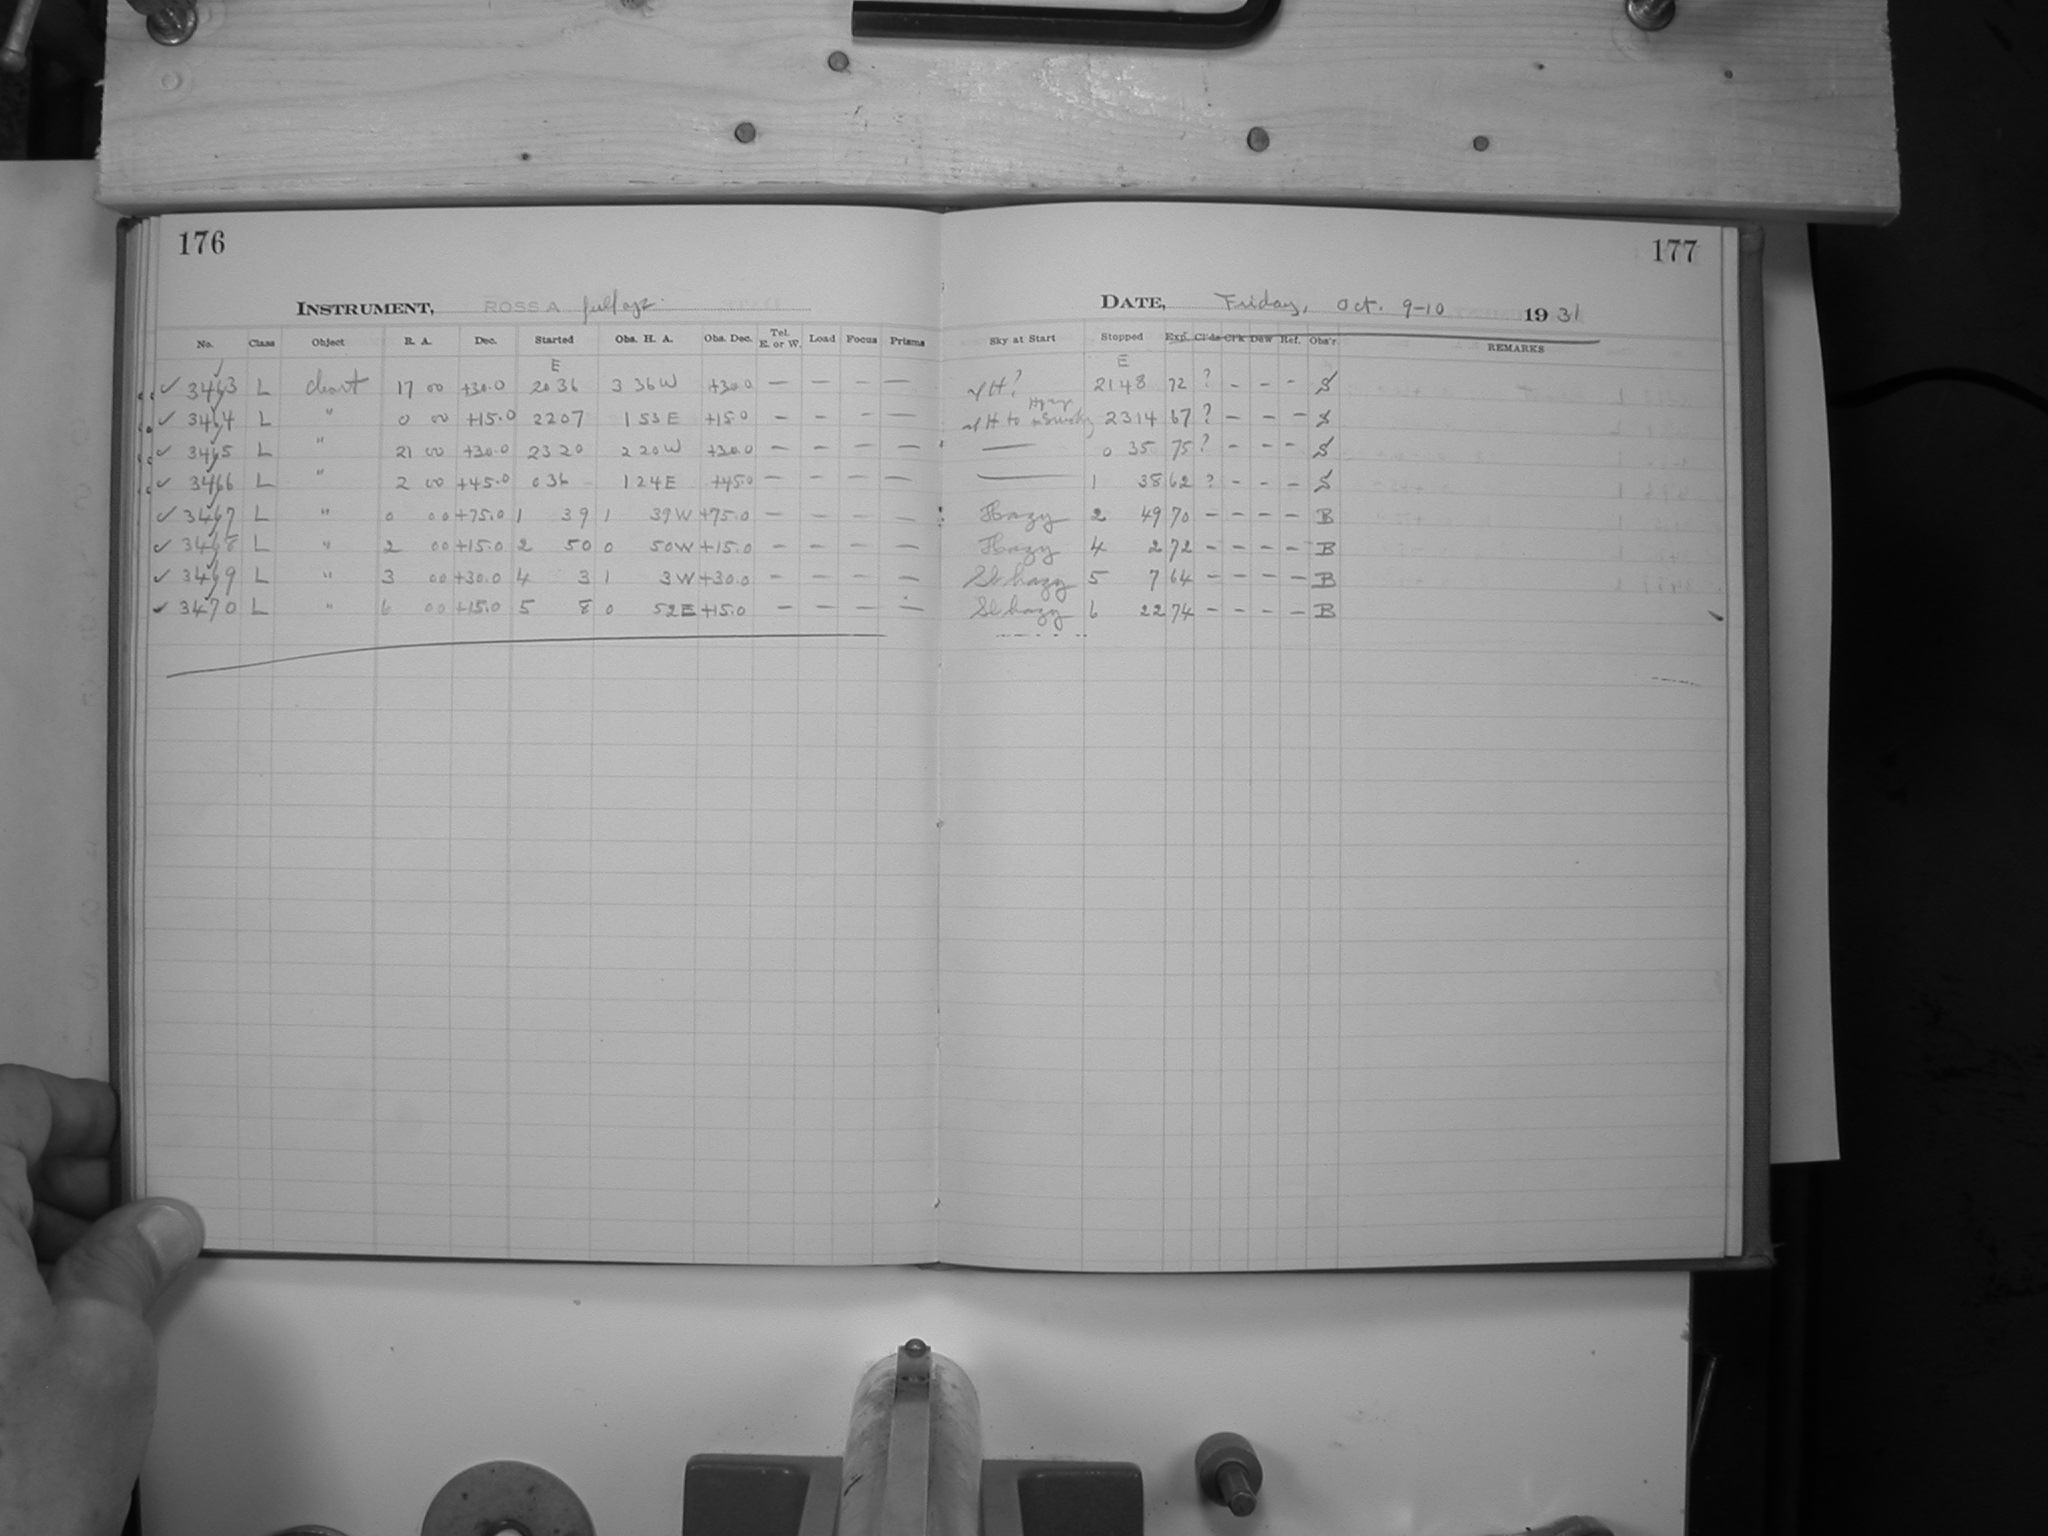 176
177
INSTRUMENT, ROSS A full ap.
DATE, Friday, Oct. 9-10 1931
No. Class Object R. A. Dec. Started Obs. H. A. Obs. Dec. Tel. E. or W. Load Focus Prisms Sky at Start Stopped Exp. Cl'ds Cl'k Dew Ref. Obs'r REMARKS
E E
✓ 3463 L chart 17 00 +30.0 20 36 3 36 W +30.0 — — — — H? 21 48 72 ? - - - S
✓ 3464 L " 0 00 +15.0 22 07 1 53 E +15.0 — - - — H to Hazy 23 14 67 ? - - - S
✓ 3465 L " 21 00 +30.0 23 20 2 20 W +30.0 — — — — —— 0 35 75 ? - - - S
✓ 3466 L " 2 00 +45.0 0 36 1 24 E +45.0 — — — — —— 1 38 62 ? - - - S
✓ 3467 L " 0 00 +75.0 1 39 1 39 W +75.0 — — — — Hazy 2 49 70 - - - - B
✓ 3468 L " 2 00 +15.0 2 50 0 50 W +15.0 — — — — Hazy 4 2 72 - - - - B
✓ 3469 L " 3 00 +30.0 4 3 1 3 W +30.0 — — — — Sl hazy 5 7 64 - - - - B
✓ 3470 L " 6 00 +15.0 5 8 0 52 E +15.0 — — — — Sl hazy 6 22 74 - - - - B